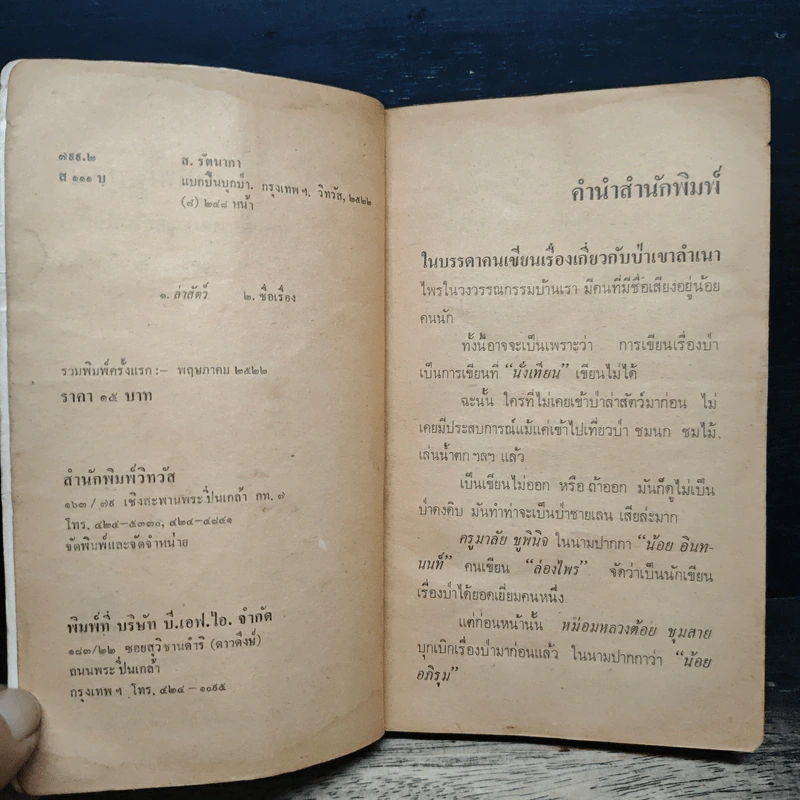 ๗๙๙.๒ ส. รัตนาภา
ส ๑๑๑ บ แบกปืนบุกป่า. กรุงเทพ ฯ. วิทวัส, ๒๕๒๒
(๘) ๒๔๘ หน้า
๑. ล่าสัตว์ ๒. ชื่อเรื่อง
รวมพิมพ์ครั้งแรก :– พฤษภาคม ๒๕๒๒
ราคา ๑๕ บาท
สำนักพิมพ์วิทวัส
๑๖๓/๗๙ เชิงสะพานพระปิ่นเกล้า กท. ๗
โทร. ๔๒๔–๕๓๓๐, ๔๒๔–๔๘๔๑
จัดพิมพ์และจัดจำหน่าย
พิมพ์ที่ บริษัท บี.เอฟ.ไอ. จำกัด
๑๘๓/๒๒ ซอยสุวิชานดำริ (ดาวดึงษ์)
ถนนพระปิ่นเกล้า
กรุงเทพ ฯ โทร. ๔๒๔ – ๑๐๙๕
คำนำสำนักพิมพ์
ในบรรดาคนเขียนเรื่องเกี่ยวกับป่าเขาลำเนา
ไพรในวงวรรณกรรมบ้านเรา มีคนที่มีชื่อเสียงอยู่น้อย
คนนัก
ทั้งนี้อาจจะเป็นเพราะว่า การเขียนเรื่องป่า
เป็นการเขียนที่ “นั่งเทียน” เขียนไม่ได้
ฉะนั้น ใครที่ไม่เคยเข้าป่าล่าสัตว์มาก่อน ไม่
เคยมีประสบการณ์แม้แค่เข้าไปเที่ยวป่า ชมนก ชมไม้.
เล่นน้ำตก ฯลฯ แล้ว
เป็นเขียนไม่ออก หรือ ถ้าออก มันก็ดูไม่เป็น
ป่าดงดิบ มันทำท่าจะเป็นป่าชายเลน เสียล่ะมาก
ครูมาลัย ชูพินิจ ในนามปากกา “น้อย อินท-
นนท์” คนเขียน “ล่องไพร” จัดว่าเป็นนักเขียน
เรื่องป่าได้ยอดเยี่ยมคนหนึ่ง
แต่ก่อนหน้านั้น หม่อมหลวงต้อย ชุมสาย
บุกเบิกเรื่องป่ามาก่อนแล้ว ในนามปากกาว่า “น้อย
อภิรุม”